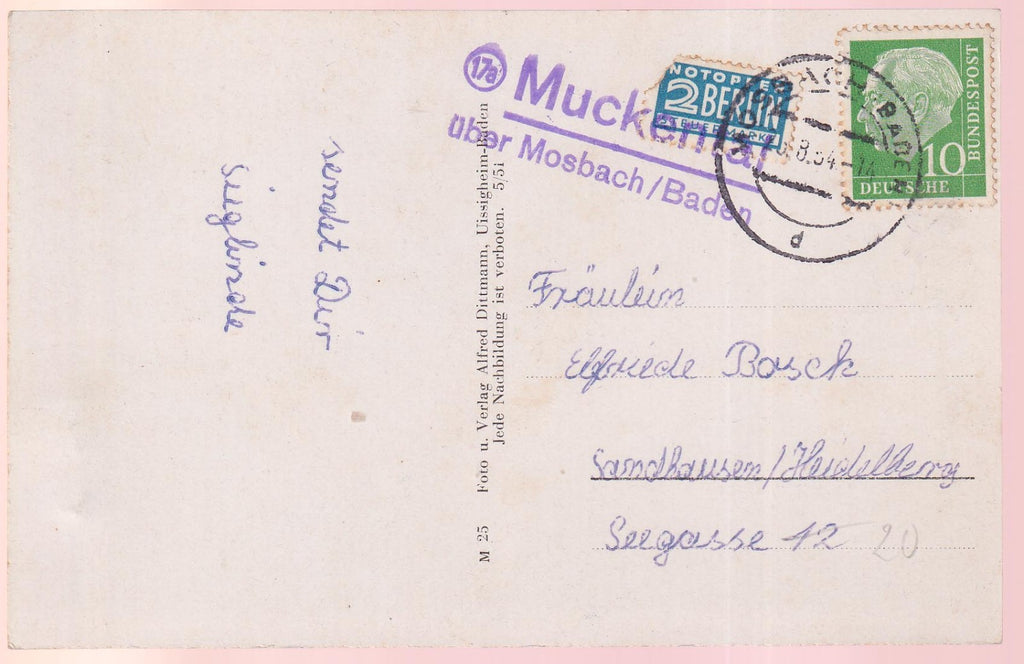 17a
Muckental
über Mosbach/Baden
NOTOPFER
2 BERLIN
STEUERMARKE
DEUTSCHE
BUNDESPOST
10
MOSBACH (BADEN)
8.54-14
d
sendet Dir
Sieglinde
M 25 Foto u. Verlag Alfred Dittmann, Uissigheim-Baden
Jede Nachbildung ist verboten. 5/51
Fräulein
Elfriede Bosch
Sandhausen/Heidelberg
Seegasse 12
20